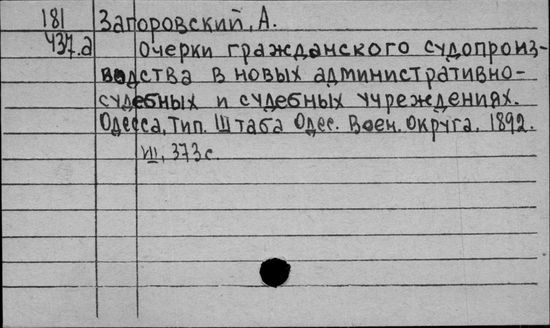 181 Загоровский, А.
437.а Очерки гражданского судопроиз-
водства в новых административно-
судебных и судебных учреждениях.
Одесса, Тип. Штаба Одес. Воен. Округа, 1892.
VIII, 373 с.